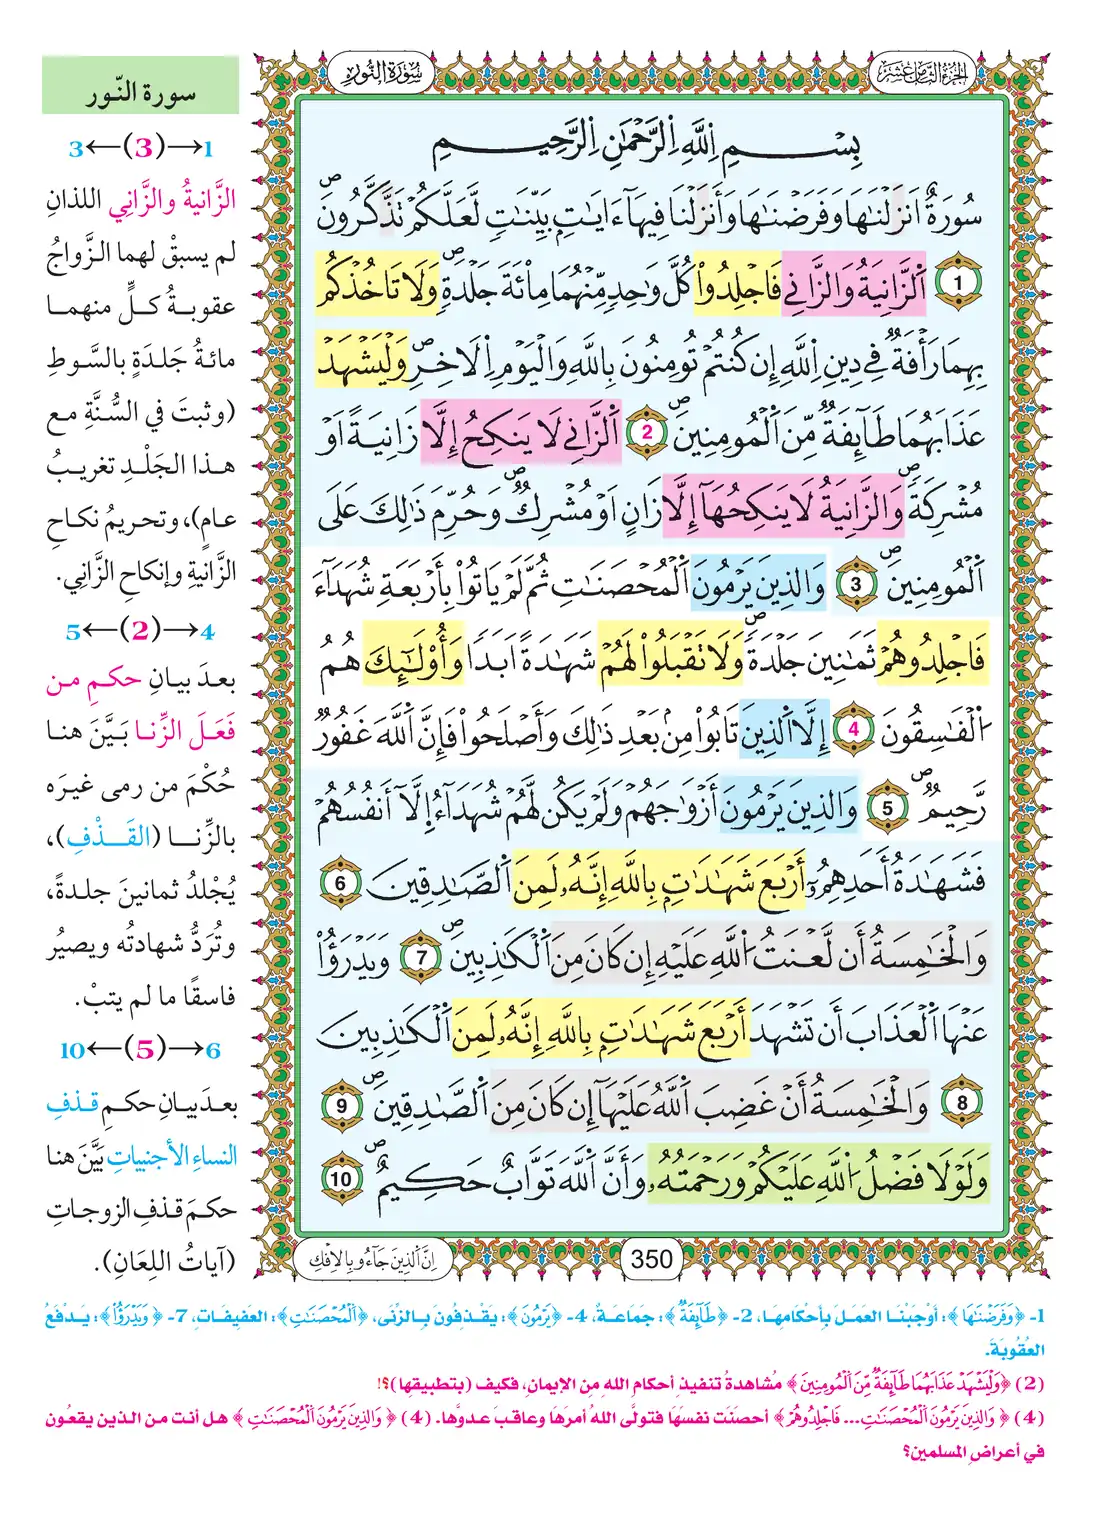 الجزء الثامن عشر
سورة النور
بِسْمِ اِللَّهِ اِلرَّحْمَٰنِ اِلرَّحِيمِ
سُورَةٌ اَنزَلْنَٰهَا وَفَرَضْنَٰهَا وَأَنزَلْنَا فِيهَآ ءَايَٰتِۢ بَيِّنَٰتٖ لَّعَلَّكُمْ تَذَّكَّرُونَۖ
1 اَ۬لزَّانِيَةُ وَالزَّانِے فَاجْلِدُواْ كُلَّ وَٰحِدٖ مِّنْهُمَا مِاْئَةَ جَلْدَةٖۖ وَلَا تَاخُذْكُم
بِهِمَا رَأْفَةٞ فِے دِينِ اِ۬للَّهِ إِن كُنتُمْ تُومِنُونَ بِاللَّهِ وَالْيَوْمِ اِ۬لَاخِرِۖ وَلْيَشْهَدْ
عَذَابَهُمَا طَآئِفَةٞ مِّنَ اَ۬لْمُومِنِينَۖ 2 اَ۬لزَّانِے لَا يَنكِحُ إِلَّا زَانِيَةً اَوْ
مُشْرِكَةٗۖ وَالزَّانِيَةُ لَا يَنكِحُهَآ إِلَّا زَانٍ اَوْ مُشْرِكٞۖ وَحُرِّمَ ذَٰلِكَ عَلَى
اَ۬لْمُومِنِينَۖ 3 وَالذِينَ يَرْمُونَ اَ۬لْمُحْصَنَٰتِ ثُمَّ لَمْ يَاتُواْ بِأَرْبَعَةِ شُهَدَآءَ
فَاجْلِدُوهُمْ ثَمَٰنِينَ جَلْدَةٗۖ وَلَا تَقْبَلُواْ لَهُمْ شَهَٰدَةً اَبَداٗ وَأُوْلَٰٓئِكَ هُمُ
اُ۬لْفَٰسِقُونَ 4 إِلَّا اَ۬لذِينَ تَابُواْ مِنۢ بَعْدِ ذَٰلِكَ وَأَصْلَحُواْ فَإِنَّ اَ۬للَّهَ غَفُورٞ
رَّحِيمٞۖ 5 وَالذِينَ يَرْمُونَ أَزْوَٰجَهُمْ وَلَمْ يَكُن لَّهُمْ شُهَدَآءُ اِلَّآ أَنفُسُهُمْ
فَشَهَٰدَةُ أَحَدِهِمُۥٓ أَرْبَعَ شَهَٰدَٰتِۢ بِاللَّهِ إِنَّهُۥ لَمِنَ اَ۬لصَّٰدِقِينَ 6
وَالْخَٰمِسَةُ أَن لَّعْنَتُ اُ۬للَّهِ عَلَيْهِ إِن كَانَ مِنَ اَ۬لْكَٰذِبِينَۖ 7 وَيَدْرَؤُاْ
عَنْهَا اَ۬لْعَذَابَ أَن تَشْهَدَ أَرْبَعَ شَهَٰدَٰتِۢ بِاللَّهِ إِنَّهُۥ لَمِنَ اَ۬لْكَٰذِبِينَ
8 وَالْخَٰمِسَةُ أَنْ غَضِبَ اَ۬للَّهُ عَلَيْهَآ إِن كَانَ مِنَ اَ۬لصَّٰدِقِينَۖ 9
وَلَوْلَا فَضْلُ اُ۬للَّهِ عَلَيْكُمْ وَرَحْمَتُهُۥ وَأَنَّ اَ۬للَّهَ تَوَّابٌ حَكِيمٌۖ 10
350
إِنَّ اَ۬لذِينَ جَآءُو بِالِافْكِ
سورة النّور
1→(3)←3
الزَّانيةُ والزَّاني اللذانِ
لم يسبقْ لهما الزَّواجُ
عقوبةُ كلٍّ منهما
مائةُ جَلدَةٍ بالسَّوطِ
(وثبتَ في السُّنَّةِ مع
هذا الجَلْدِ تغريبُ
عامٍ)، وتحريمُ نكاحِ
الزَّانيةِ وإنكاحِ الزَّاني.
4→(2)←5
بعدَ بيانِ حكمِ من
فَعَلَ الزِّنا بَيَّنَ هنا
حُكْمَ من رمى غيرَه
بالزِّنا (القَذْفِ)،
يُجْلدُ ثمانينَ جلدةً،
وتُرَدُّ شهادتُه ويصيرُ
فاسقًا ما لم يتبْ.
6→(5)←10
بعدَ بيانِ حكمِ قذفِ
النساءِ الأجنبياتِ بَيَّنَ هنا
حكمَ قذفِ الزوجاتِ
(آياتُ اللِعَانِ).
1- ﴿وَفَرَضْنَٰهَا﴾: أوْجَبْنَا العَمَلَ بأحْكَامِهَا، 2- ﴿طَآئِفَةٞ﴾: جَمَاعَةٌ، 4- ﴿يَرْمُونَ﴾: يَقْذِفُونَ بِالزِّنَى، ﴿اَ۬لْمُحْصَنَٰتِ﴾: العَفِيفَاتِ، 7- ﴿وَيَدْرَؤُاْ﴾: يَدْفَعُ
العُقُوبَةَ.
(2) ﴿وَلْيَشْهَدْ عَذَابَهُمَا طَآئِفَةٞ مِّنَ اَ۬لْمُومِنِينَ﴾ مُشاهدةُ تنفيذِ أحكامِ اللهِ مِن الإيمانِ، فكيف (بتطبيقِها)؟!
(4) ﴿وَالذِينَ يَرْمُونَ اَ۬لْمُحْصَنَٰتِ... فَاجْلِدُوهُمْ﴾ أحصَنَت نفسَهَا فتولَّى اللهُ أمرَهَا وعاقبَ عدوَّها. (4) ﴿وَالذِينَ يَرْمُونَ اَ۬لْمُحْصَنَٰتِ﴾ هل أنت من الذين يقعُون
في أعراضِ المسلمين؟